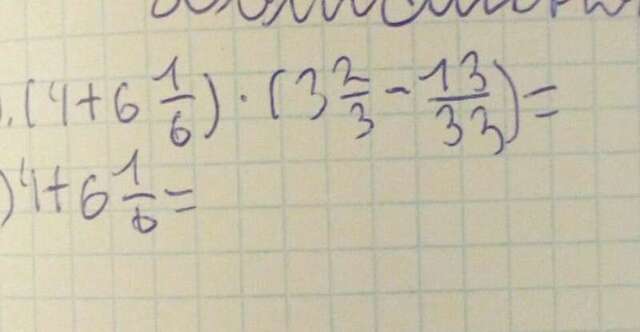 .(4+6 1/6)·(3 2/3-13/33)=
)4+6 1/6=